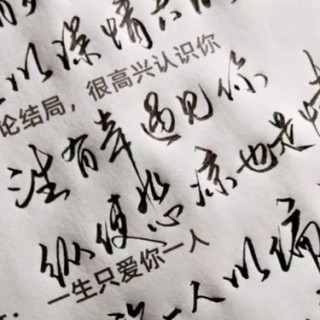 以深情共
论结局，很高兴认识你
生有幸遇见你
纵使悲凉也是情
一生只爱你一人
一人以偏